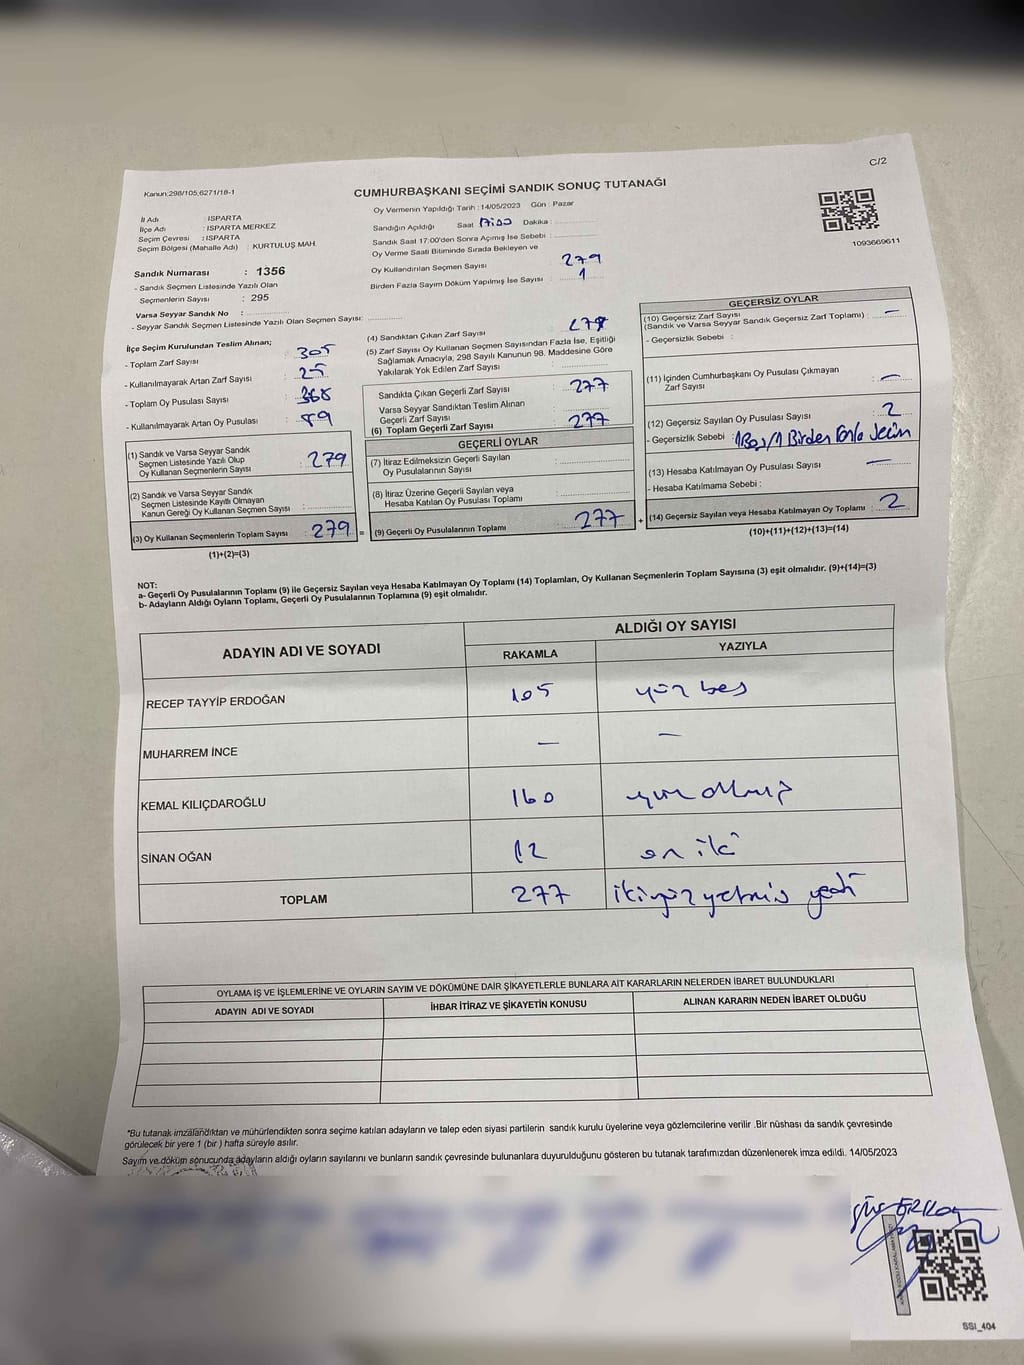 C/2
Kanun:298/105;6271/18-1
CUMHURBAŞKANI SEÇİMİ SANDIK SONUÇ TUTANAĞI
İl Adı : ISPARTA
İlçe Adı : ISPARTA MERKEZ
Seçim Çevresi : ISPARTA
Seçim Bölgesi (Mahalle Adı) : KURTULUŞ MAH.
Oy Vermenin Yapıldığı Tarih : 14/05/2023 Gün : Pazar
Sandığın Açıldığı Saat Dakika :
Sandık Saat 17:00'den Sonra Açılmış İse Sebebi :
Oy Verme Saati Bitiminde Sırada Bekleyen ve
Oy Kullandırılan Seçmen Sayısı 279
Birden Fazla Sayım Döküm Yapılmış İse Sayısı : 1
1093669611
Sandık Numarası : 1356
- Sandık Seçmen Listesinde Yazılı Olan
Seçmenlerin Sayısı : 295
Varsa Seyyar Sandık No :
- Seyyar Sandık Seçmen Listesinde Yazılı Olan Seçmen Sayısı:
İlçe Seçim Kurulundan Teslim Alınan;
- Toplam Zarf Sayısı : 305
- Kullanılmayarak Artan Zarf Sayısı : 25
- Toplam Oy Pusulası Sayısı : 368
- Kullanılmayarak Artan Oy Pusulası : 89
(1) Sandık ve Varsa Seyyar Sandık
Seçmen Listesinde Yazılı Olup
Oy Kullanan Seçmenlerin Sayısı : 279
(2) Sandık ve Varsa Seyyar Sandık
Seçmen Listesinde Kayıtlı Olmayan
Kanun Gereği Oy Kullanan Seçmen Sayısı :
(3) Oy Kullanan Seçmenlerin Toplam Sayısı : 279 =
(1)+(2)=(3)
(4) Sandıktan Çıkan Zarf Sayısı :
(5) Zarf Sayısı Oy Kullanan Seçmen Sayısından Fazla İse, Eşitliği
Sağlamak Amacıyla, 298 Sayılı Kanunun 98. Maddesine Göre
Yakılarak Yok Edilen Zarf Sayısı :
Sandıkta Çıkan Geçerli Zarf Sayısı : 277
Varsa Seyyar Sandıktan Teslim Alınan
Geçerli Zarf Sayısı :
(6) Toplam Geçerli Zarf Sayısı : 277
GEÇERLİ OYLAR
(7) İtiraz Edilmeksizin Geçerli Sayılan
Oy Pusulalarının Sayısı :
(8) İtiraz Üzerine Geçerli Sayılan veya
Hesaba Katılan Oy Pusulası Toplamı :
(9) Geçerli Oy Pusulalarının Toplamı : 277 +
GEÇERSİZ OYLAR
(10) Geçersiz Zarf Sayısı
(Sandık ve Varsa Seyyar Sandık Geçersiz Zarf Toplamı) : —
- Geçersizlik Sebebi :
(11) İçinden Cumhurbaşkanı Oy Pusulası Çıkmayan
Zarf Sayısı : —
(12) Geçersiz Sayılan Oy Pusulası Sayısı : 2
- Geçersizlik Sebebi : 1 Boş/1 Birden Fazla Seçim
(13) Hesaba Katılmayan Oy Pusulası Sayısı : —
- Hesaba Katılmama Sebebi :
(14) Geçersiz Sayılan veya Hesaba Katılmayan Oy Toplamı : 2
(10)+(11)+(12)+(13)=(14)
NOT:
a- Geçerli Oy Pusulalarının Toplamı (9) ile Geçersiz Sayılan veya Hesaba Katılmayan Oy Toplamı (14) Toplamları, Oy Kullanan Seçmenlerin Toplam Sayısına (3) eşit olmalıdır. (9)+(14)=(3)
b- Adayların Aldığı Oyların Toplamı, Geçerli Oy Pusulalarının Toplamına (9) eşit olmalıdır.
ADAYIN ADI VE SOYADI ALDIĞI OY SAYISI
RAKAMLA YAZIYLA
RECEP TAYYİP ERDOĞAN 105 yüz beş
MUHARREM İNCE — —
KEMAL KILIÇDAROĞLU 160 yüz altmış
SİNAN OĞAN 12 on iki
TOPLAM 277 ikiyüz yetmiş yedi
OYLAMA İŞ VE İŞLEMLERİNE VE OYLARIN SAYIM VE DÖKÜMÜNE DAİR ŞİKAYETLERLE BUNLARA AİT KARARLARIN NELERDEN İBARET BULUNDUKLARI
ADAYIN ADI VE SOYADI İHBAR İTİRAZ VE ŞİKAYETİN KONUSU ALINAN KARARIN NEDEN İBARET OLDUĞU
*Bu tutanak imzalandıktan ve mühürlendikten sonra seçime katılan adayların ve talep eden siyasi partilerin sandık kurulu üyelerine veya gözlemcilerine verilir .Bir nüshası da sandık çevresinde
görülecek bir yere 1 (bir ) hafta süreyle asılır.
Sayım ve döküm sonucunda adayların aldığı oyların sayılarını ve bunların sandık çevresinde bulunanlara duyurulduğunu gösteren bu tutanak tarafımızdan düzenlenerek imza edildi. 14/05/2023
SSI_404